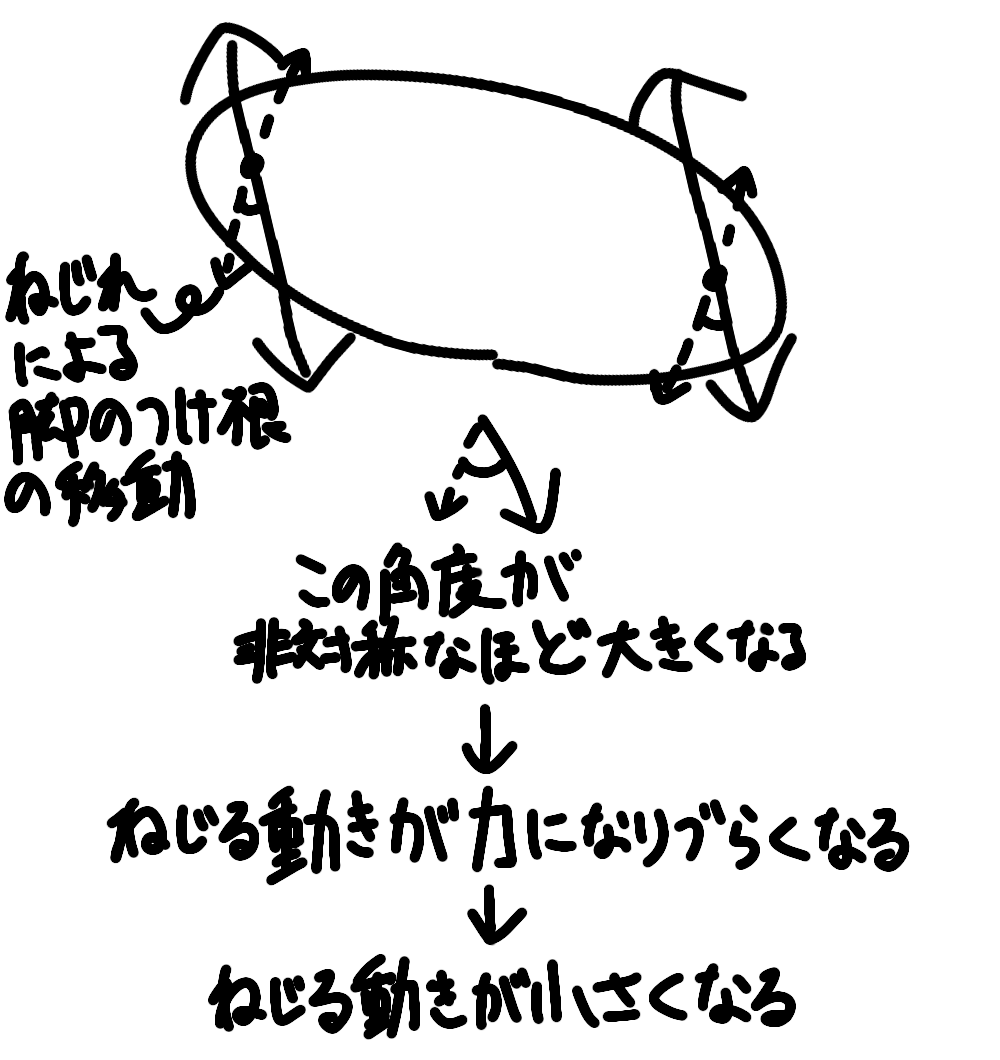 ねじれ
による
脚のつけ根
の移動
この角度が
非対称なほど大きくなる
ねじる動きが力になりづらくなる
ねじる動きが小さくなる